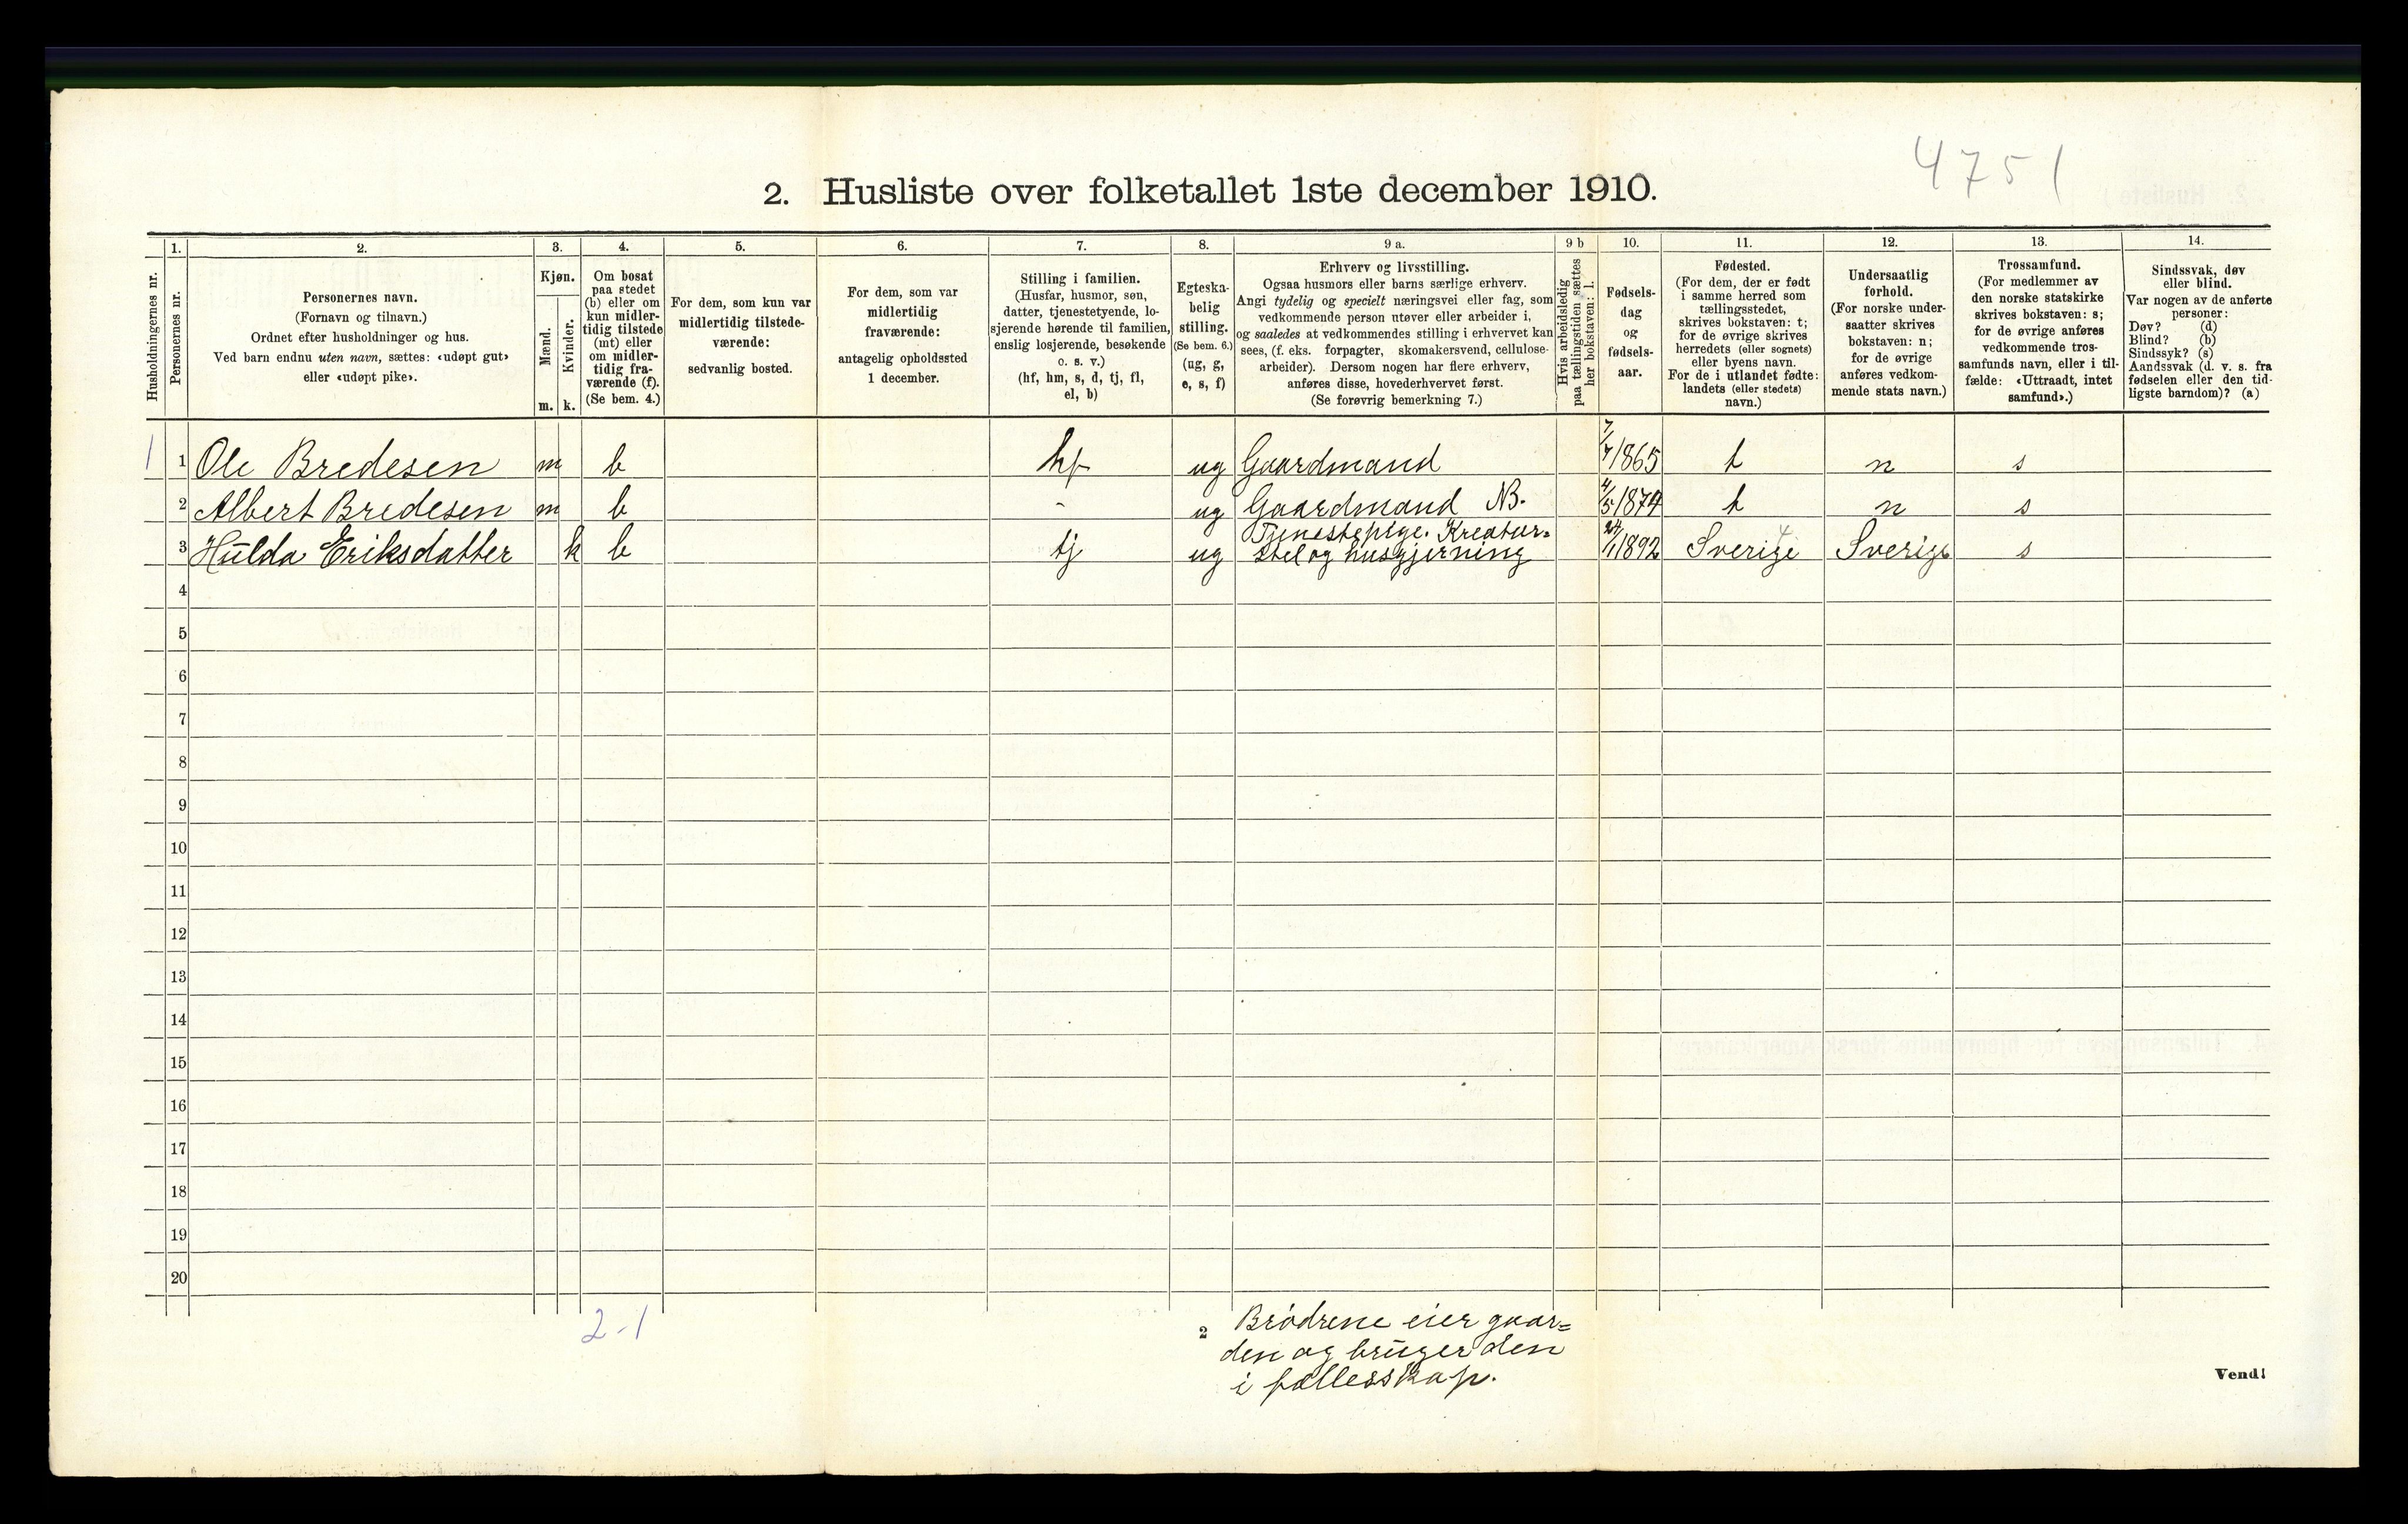 4751
2. Husliste over folketallet 1ste december 1910.
1. 2. 3. 4. 5. 6. 7. 8. 9 a. 9 b 10. 11. 12. 13. 14.
Husholdningernes nr.
Personernes nr.
Personernes navn.
(Fornavn og tilnavn.)
Ordnet efter husholdninger og hus.
Ved barn endnu uten navn, sættes: «udøpt gut»
eller «udøpt pike».
Kjøn.
Mænd.
Kvinder.
m. k.
Om bosat
paa stedet
(b) eller om
kun midler-
tidig tilstede
(mt) eller
om midler-
tidig fra-
værende (f).
(Se bem. 4.)
For dem, som kun var
midlertidig tilstede-
værende:
sedvanlig bosted.
For dem, som var
midlertidig
fraværende:
antagelig opholdssted
1 december.
Stilling i familien.
(Husfar, husmor, søn,
datter, tjenestetyende, lo-
sjerende hørende til familien,
enslig losjerende, besøkende
o. s. v.)
(hf, hm, s, d, tj, fl,
el, b)
Egteska-
belig
stilling.
(Se bem. 6.)
(ug, g,
e, s, f)
Erhverv og livsstilling.
Ogsaa husmors eller barns særlige erhverv.
Angi tydelig og specielt næringsvei eller fag, som
vedkommende person utøver eller arbeider i,
og saaledes at vedkommendes stilling i erhvervet kan
sees, (f. eks. forpagter, skomakersvend, cellulose-
arbeider). Dersom nogen har flere erhverv,
anføres disse, hovederhvervet først.
(Se forøvrig bemerkning 7.)
Hvis arbeidsledig
paa tællingstiden sættes
her bokstaven: l.
Fødsels-
dag
og
fødsels-
aar.
Fødested.
(For dem, der er født
i samme herred som
tællingsstedet,
skrives bokstaven: t;
for de øvrige skrives
herredets (eller sognets)
eller byens navn.
For de i utlandet fødte:
landets (eller stedets)
navn.)
Undersaatlig
forhold.
(For norske under-
saatter skrives
bokstaven: n;
for de øvrige
anføres vedkom-
mende stats navn.)
Trossamfund.
(For medlemmer av
den norske statskirke
skrives bokstaven: s;
for de øvrige anføres
vedkommende tros-
samfunds navn, eller i til-
fælde: «Uttraadt, intet
samfund».)
Sindssvak, døv
eller blind.
Var nogen av de anførte
personer:
Døv? (d)
Blind? (b)
Sindssyk? (s)
Aandssvak (d. v. s. fra
fødselen eller den tid-
ligste barndom)? (a)
1 1 Ole Bredesen m b hf ug Gaardmand 7/7 1865 t n s
2 Albert Bredesen m b - ug Gaardmand NB. 4/5 1874 t n s
3 Hulda Eriksdatter k b tj ug Tjenestepige. Kreatur=
stel og husgjerning 24/1 1892 Sverige Sverige s
4
5
6
7
8
9
10
11
12
13
14
15
16
17
18
19
20
2-1
2
Brødrene eier gaar=
den og bruger den
i fællesskap.
Vend!